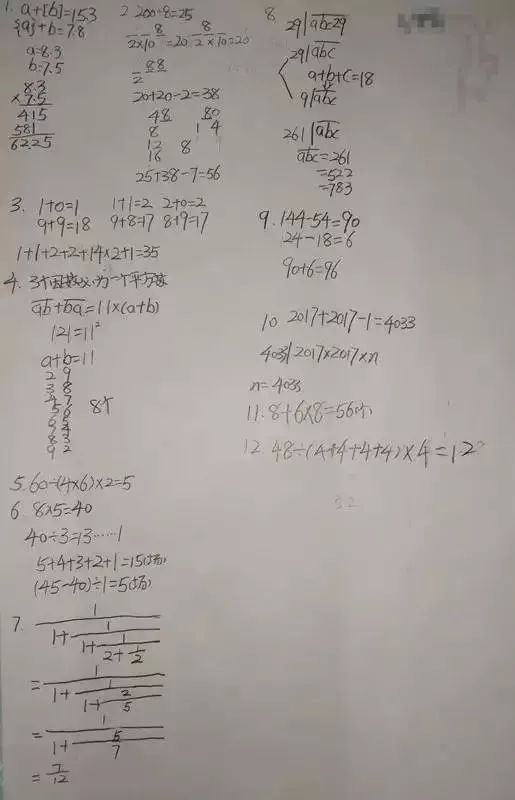 1. a+[b]=15.3
{a}+b=7.8
a=8.3
b=7.5
8.3
× 7.5
415
581
62.25
2. 200÷8=25
8 8
2×10=20 2×10=20
88
2
20+20-2=38
48 80
8 1 4
12 8
16
25+38-7=56
3. 1+0=1 1+1=2 2+0=2
9+9=18 9+8=17 8+9=17
1+1+2+2+14×2+1=35
4. 3个因数必为一个平方数
ab+ba=11×(a+b)
121=11²
a+b=11
2 9
3 8
4 7
5 6 8个
6 5
7 4
8 3
9 2
5. 60÷(4×6)×2=5
6. 8×5=40
40÷3=13……1
5+4+3+2+1=15(场)
(45-40)÷1=5(场)
7. 1
1+ 1
1+ 1
2+ 1
2
= 1
1+ 1
1+ 2
5
= 1
1+ 5
7
= 7
12
8 29|abc29
29|abc
a+b+c=18
9|abc
261|abc
abc=261
=522
=783
9. 144-54=90
24-18=6
90+6=96
10 2017+2017-1=4033
4033|2017×2017×n
n=4033
11. 8+6×8=56(个)
12. 48÷(4+4+4+4)×4=12